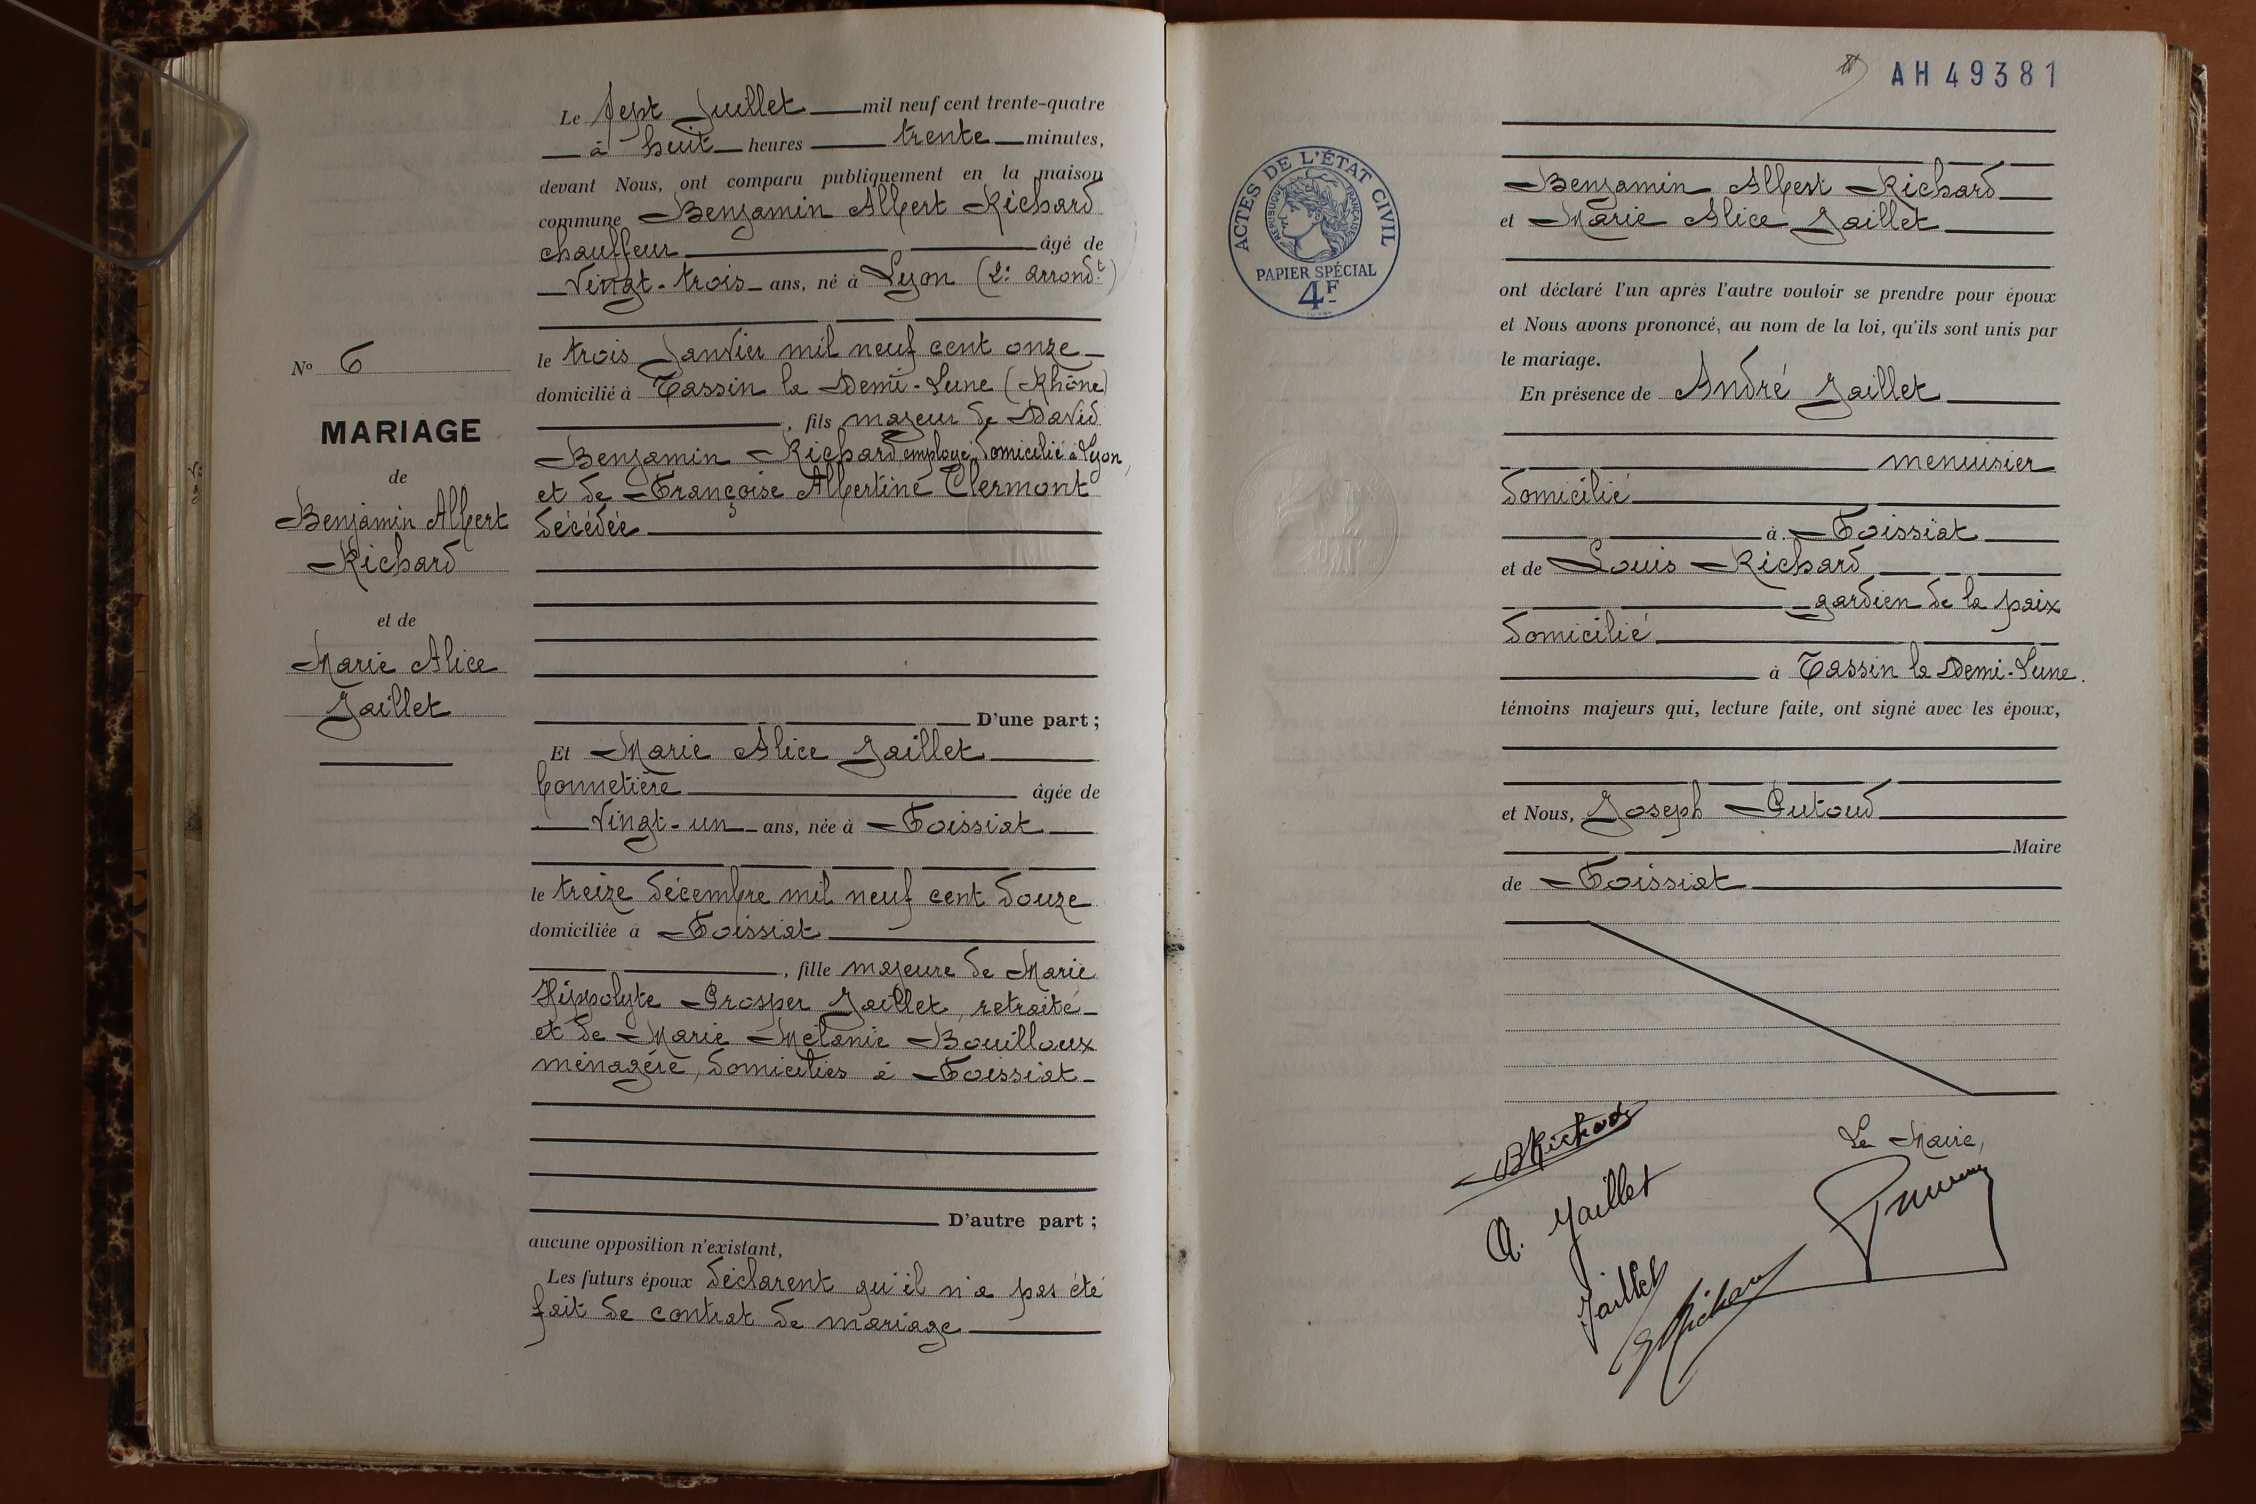 Le sept Juillet mil neuf cent trente-quatre
à huit heures trente minutes,
devant Nous, ont comparu publiquement en la maison
commune Benjamin Albert Richard
chauffeur âgé de
vingt-trois ans, né à Lyon (2e arrondt)
le trois Janvier mil neuf cent onze
domicilié à Tassin la Demi-Lune (Rhône)
, fils majeur de David
Benjamin Richard employé, domicilié à Lyon,
et de Françoise Albertine Clermont
décédée
D'une part ;
Et Marie Alice Jaillet
bonnetière âgée de
vingt-un ans, née à Foissiat
le treize décembre mil neuf cent douze
domiciliée à Foissiat
, fille majeure de Marie
Hippolyte Prosper Jaillet, retraité
et de Marie Mélanie Bouilloux
ménagère, domiciliés à Foissiat
D'autre part ;
aucune opposition n'existant,
Les futurs époux déclarent qu'il n'a pas été
fait de contrat de mariage
No 6
MARIAGE
de
Benjamin Albert
Richard
et de
Marie Alice
Jaillet
AH 49381
ACTES DE L'ÉTAT CIVIL
RÉPUBLIQUE FRANÇAISE
PAPIER SPÉCIAL
4F
Benjamin Albert Richard
et Marie Alice Jaillet
ont déclaré l'un après l'autre vouloir se prendre pour époux
et Nous avons prononcé, au nom de la loi, qu'ils sont unis par
le mariage.
En présence de André Jaillet
menuisier
domicilié
à Foissiat
et de Louis Richard
gardien de la paix
domicilié
à Tassin la Demi-Lune.
témoins majeurs qui, lecture faite, ont signé avec les époux,
et Nous, Joseph Putoud
Maire
de Foissiat
BRichard
Le Maire,
A. Jaillet
Jaillet
Richard